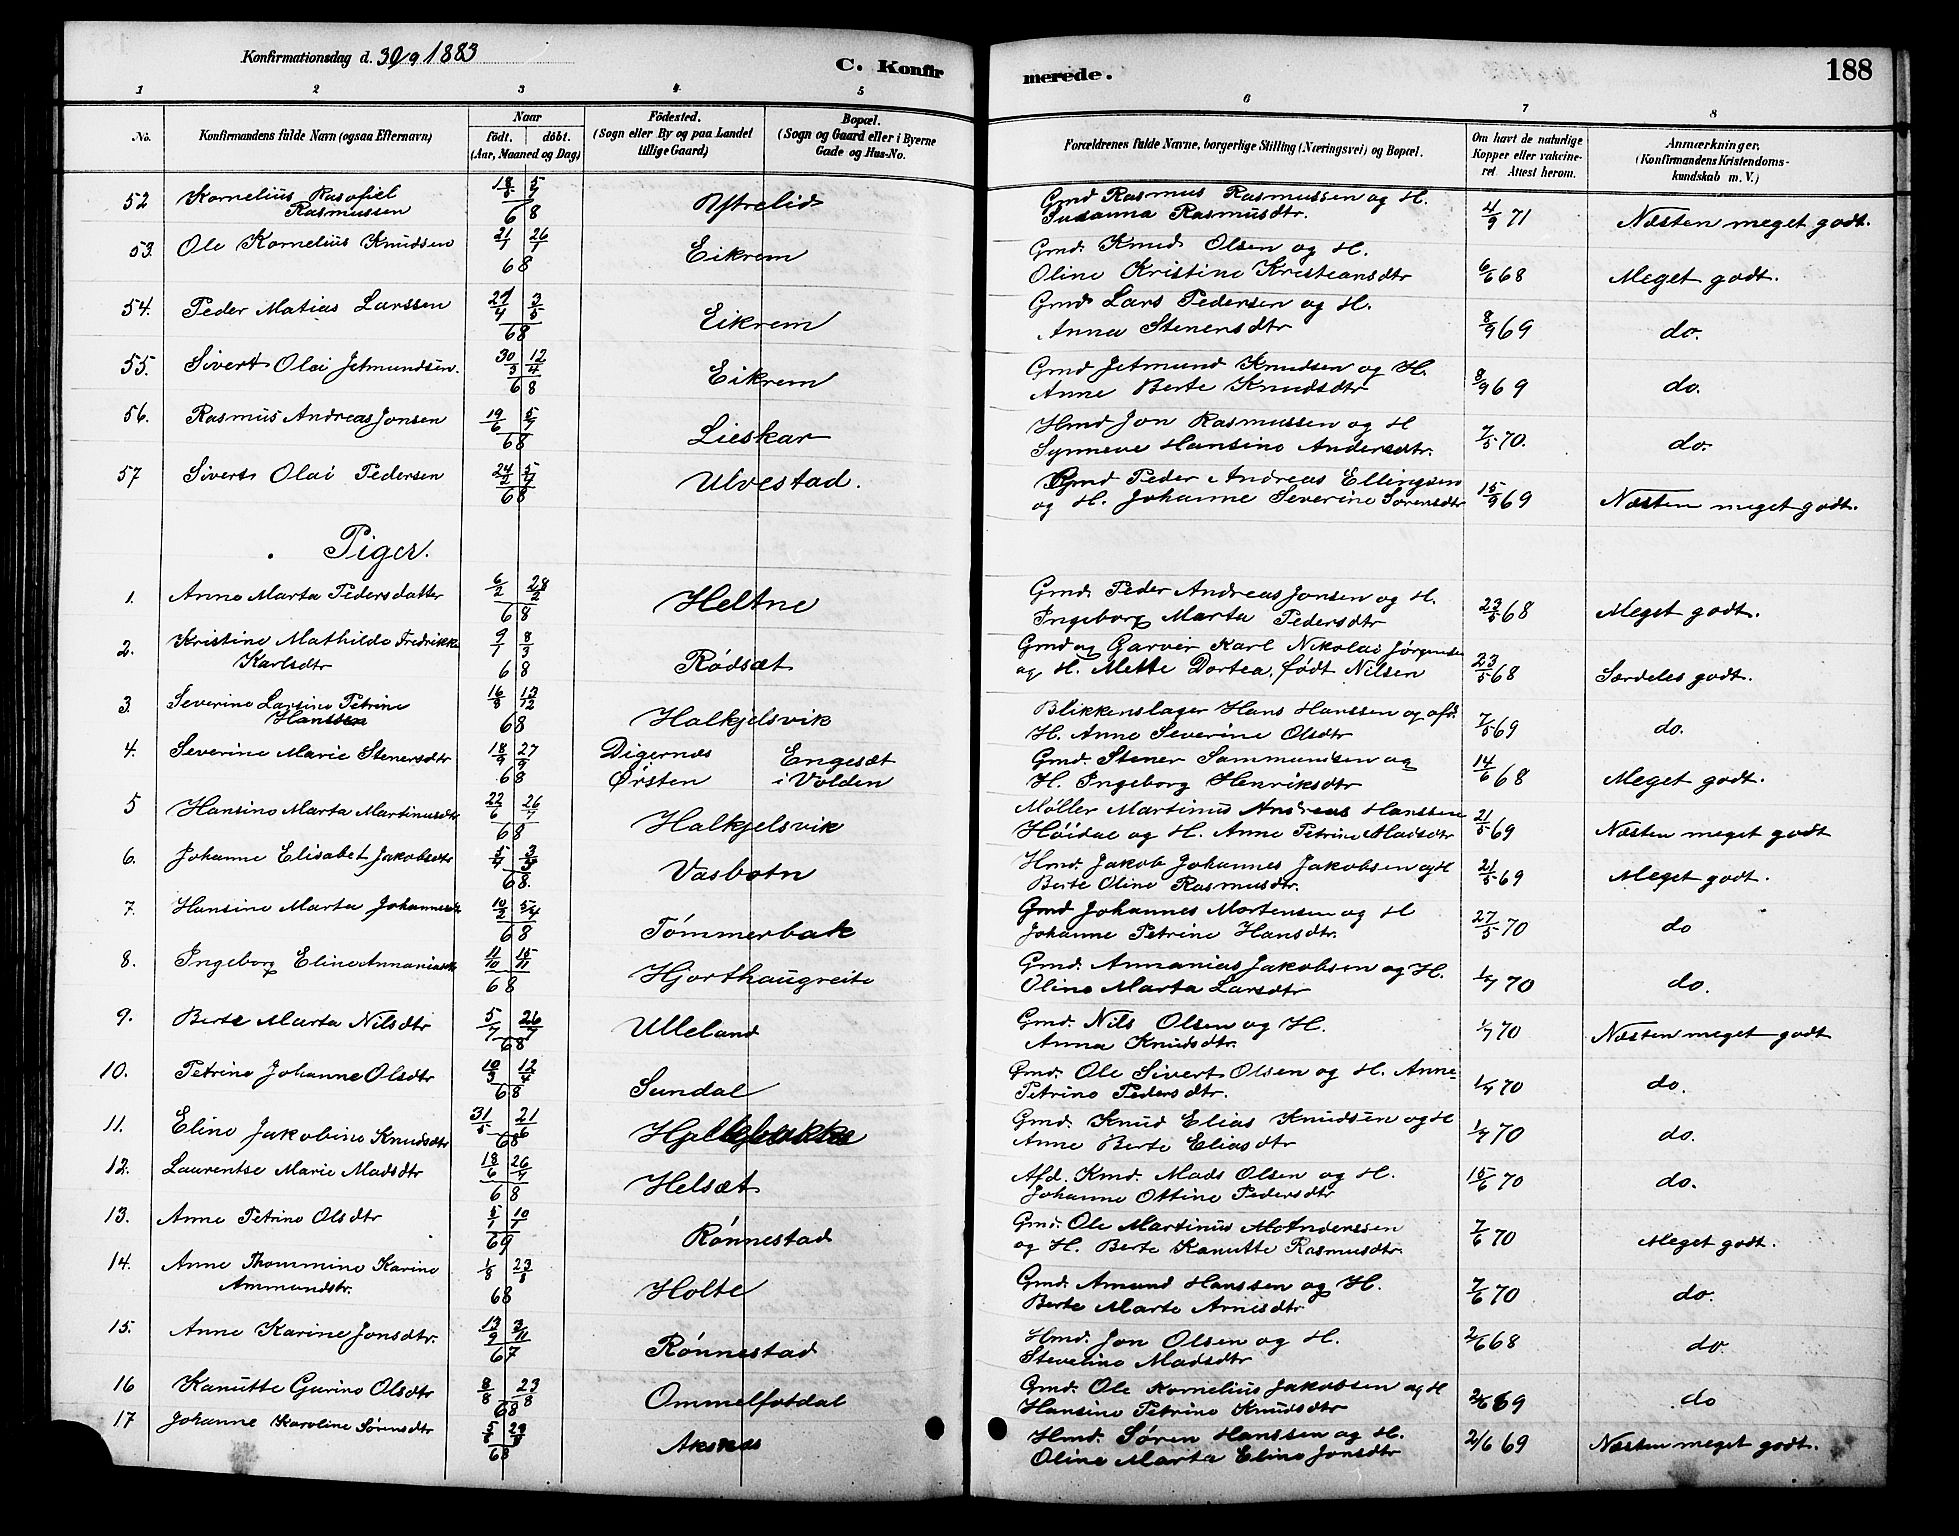 Konfirmationsdag d. 30/9 1883
C. Konfir
merede.
188
1 2 3 4 5 6 7 8
No.
Konfirmandens fulde Navn (ogsaa Efternavn)
Naar
födt. döbt.
(Aar, Maaned og Dag)
Födested.
(Sogn eller By og paa Landet
tillige Gaard)
Bopæl.
(Sogn og Gaard eller i Byerne
Gade og Hus-No.
Forældrenes fulde Navne, borgerlige Stilling (Næringsvei) og Bopæl.
Om havt de naturlige
Kopper eller vakcine-
ret. Attest herom.
Anmærkninger.
(Konfirmandens Kristendoms-
kundskab m. V.)
52 Kornelius Rasmussen 68 Ystrelid Gmd Rasmus Rasmussen og H. 4/9 71 Næsten meget godt.
Susanna Rasmusdtr.
53. Ole Kornelius Knudsen 21/1 26/1 68 Eikrem Gmd. Knud Olsen og H. 6/6 68 Meget godt.
Oline Kristine Kristeansdtr
54. Peder Matias Larssen 3/5 68 Eikrem Gmd Lars Pedersen og H. 8/9 69 do.
Anna Stenersdtr
55. Sivert Olai Jetmundsen. 30/3 12/4 68 Eikrem Gmd Jetmund Knudsen og H. 8/9 69 do.
Anne Berte Knudsdtr
56. Rasmus Andreas Jonsen 19/6 5/7 68 Lieskar Hmd Jon Rasmussen og H 7/5 70. do.
Synneve Hansine Andersdtr.
57 Sivert Olai Pedersen 68 Ulvestad. Gmd Peder Andreas Ellingsen 15/9 69 Næsten meget godt.
og H. Johanne Severine Sørensdtr
Piger.
1. Anne Marta Pedersdatter 6/2 28/2 68 Heltne Gmd. Peder Andreas Jonsen og H. 23/5 68 Meget godt.
Ingeborg Marta Pedersdtr
2. Kristine Mathilde Fredrikke 9/1 8/3 68 Rödsæt Gmd og Garver Karl Nikolai Jörgensen 23/5 68 Særdeles godt.
Karlsdtr og H. Mette Dortea, født Nilsen
3. Severine Larsine Petrine 13/12 68 Halkjelsvik Blikkenslager Hans Hanssen og afd. 7/5 69 do.
Hanssen H. Anne Severine Olsdtr
4. Severine Marie Stenersdtr 18/9 27/9 68 Digernæs Engesæt Gmd. Stener Sammundsen og 14/6 68 Meget godt.
Ørsten i Volden H. Ingeborg Henriksdtr
5 Hansine Marta Martinusdtr 22/6 26/7 68 Halkjelsvik Møller Martinus Andreas Hanssen 21/5 69 Næsten meget godt
Höidal og H. Anne Petrine Madsdtr
6. Johanne Elisabet Jakobsdtr 68. Vasbotn Hmd. Jakob Johannes Jakobsen og H 21/5 69 Meget godt.
Berte Oline Rasmusdtr.
7. Hansine Marta Johannesdtr 5/4 68 Tömmerbak Gmd Johannes Mortensen og H 27/5 70 do
Johanne Petrine Hansdtr.
8. Ingeborg Eline Annaniasdtr 11/10 15/11 68 Hjorthaugreite Gmd. Annanias Jakobsen og H. 1/7 70 do.
Oline Marta Larsdtr
9. Berte Marta Nilsdtr 5/7 26/7 68 Ulleland Gmd. Nils Olsen og H. 1/7 70 Næsten meget godt
Anna Knudsdtr.
10. Petrine Johanne Olsdtr 10/3 12/4 68 Sundal Gmd. Ole Sivert Olsen og H. Anne- 1/7 70 do.
Petrine Pedersdtr.
11. Eline Jakobine Knudsdtr 31/5 21/6 68 Gmd. Knud Elias Knudsen og H 1/7 70 do.
Anne Berte Eliasdtr
12. Laurentse Marie Madsdtr 18/6 26/7 68 Helsæt Afd. Kmd. Mads Olsen og H. 15/6 70 do.
Johanne Ottine Pedersdtr
13. Anne Petrine Olsdtr 5/1 10/1 69 Rönnestad Gmd. Ole Martinus Anderssen 7/6 70 Meget godt.
og H. Berte Kanutte Rasmusdtr.
14. Anne Thommine Karine 1/8 23/8 68 Holte Gmd. Amund Hanssen og H. 7/6 70 do.
Ammundstr. Berte Marte Arnesdtr
15. Anne Karine Jonsdtr. 13/9 3/11 67 Rönnestad Hmd. Jon Olsen og H. 2/6 68 do
Steveline Madsdtr
16 Kanutte Gurine Olsdtr 8/8 23/8 68 Ommelfotdal Gmd. Ole Kornelius Jakobsen og H 2/6 69 do
Hansine Petrine Knudsdtr
17 Johanne Karoline Sørensdtr 68 Aksnes Hmd. Søren Hanssen og H. 2/6 69 Næsten meget godt.
Oline Marta Eline Jonsdtr